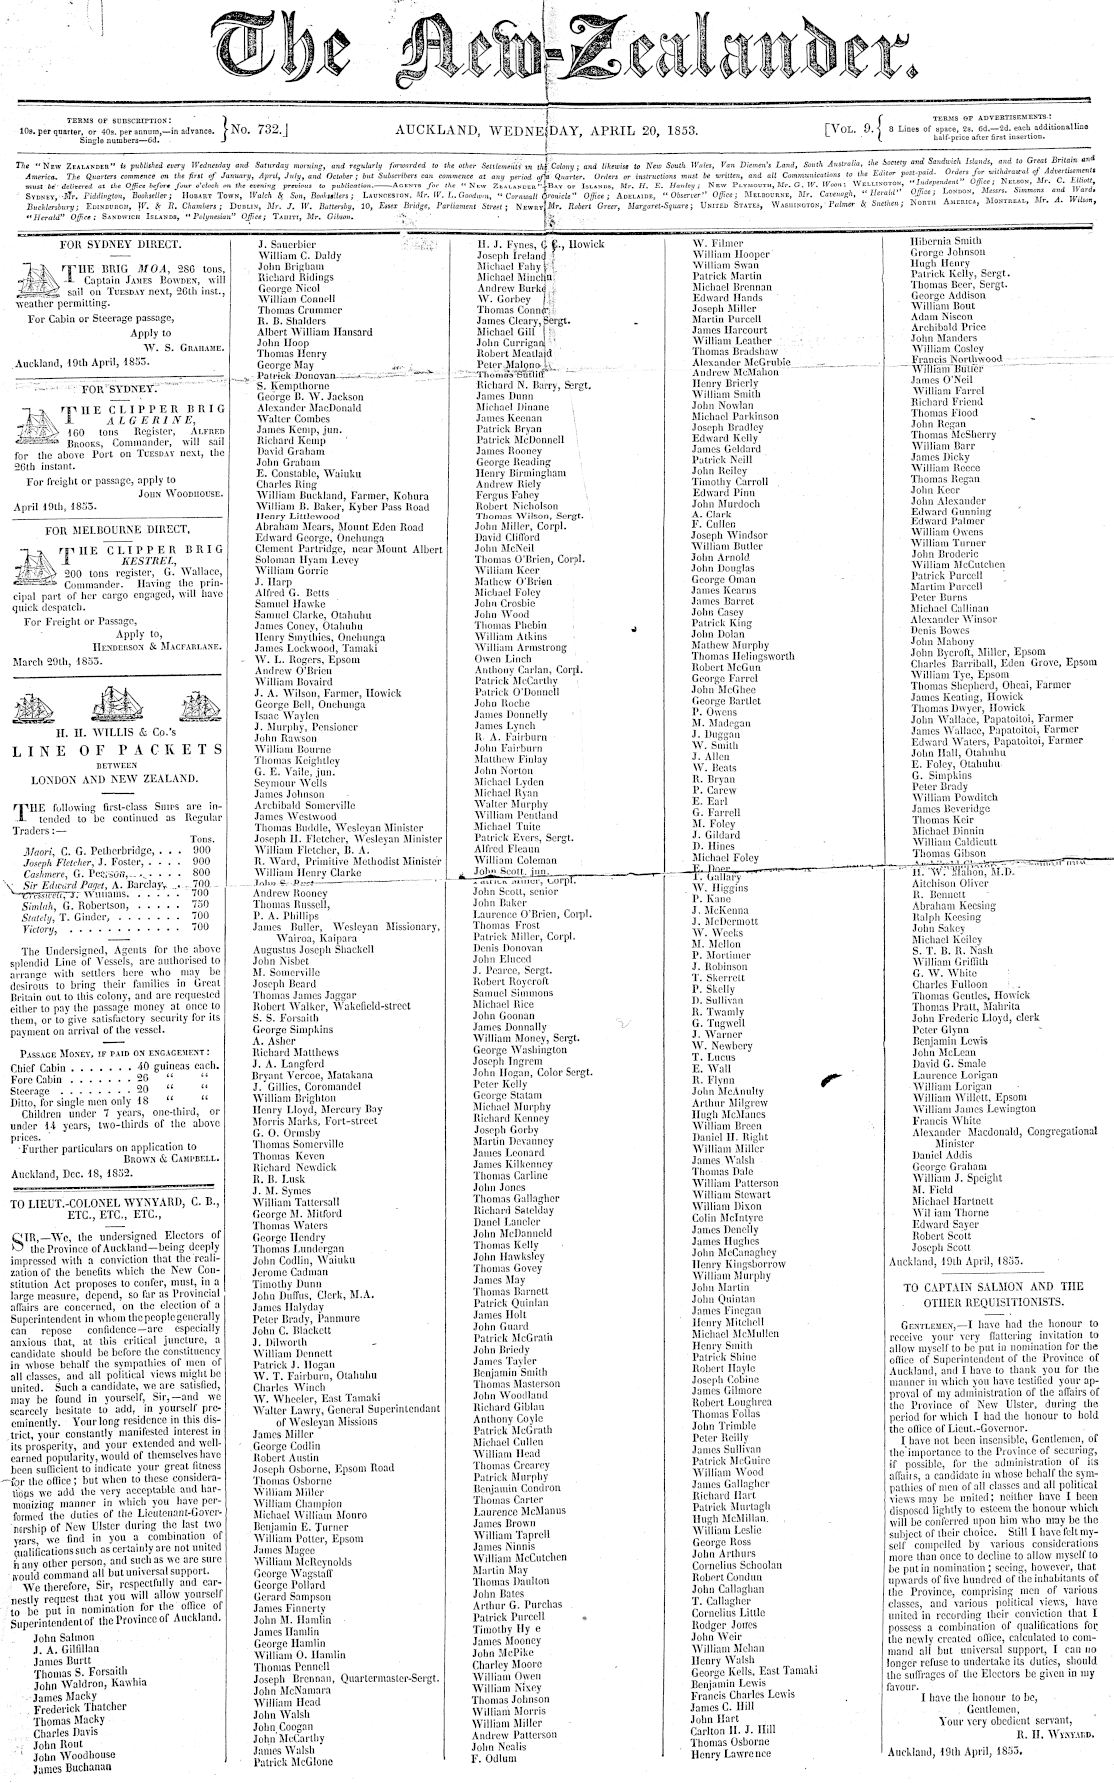 The New-Zealander.
TERMS OF SUBSCRIPTION:
10s. per quarter, or 40s. per annum,—in advance.
Single numbers—6d.
No. 732.]
AUCKLAND, WEDNESDAY, APRIL 20, 1853.
[VOL. 9.
TERMS OF ADVERTISEMENTS:
8 Lines of space, 2s. 6d.—2d. each additional line
half-price after first insertion.
The "NEW ZEALANDER" is published every Wednesday and Saturday morning, and regularly forwarded to the other Settlements in the Colony; and likewise to New South Wales, Van Diemen's Land, South Australia, the Society and Sandwich Islands, and to Great Britain and
America. The Quarters commence on the first of January, April, July, and October; but Subscribers can commence at any period of a Quarter. Orders or instructions must be written, and all Communications to the Editor post-paid. Orders for withdrawal of Advertisements
must be delivered at the Office before four o'clock on the evening previous to publication.—AGENTS for the "NEW ZEALANDER"—BAY OF ISLANDS, Mr. H. E. Hanley; NEW PLYMOUTH, Mr. G. W. Woon; WELLINGTON, "Independent" Office; NELSON, Mr. C. Elliott,
SYDNEY, Mr. Piddington, Bookseller; HOBART TOWN, Walch & Son, Booksellers; LAUNCESTON, Mr. W. L. Goodwin, "Cornwall Chronicle" Office; ADELAIDE, "Observer" Office; MELBOURNE, Mr. Cavenagh, "Herald" Office; LONDON, Messrs. Simmonds and Ward,
Bucklersbury; EDINBURGH, W. & R. Chambers; DUBLIN, Mr. J. W. Battersby, 10, Essex Bridge, Parliament Street; NEWRY, Mr. Robert Greer, Margaret-Square; UNITED STATES, WASHINGTON, Palmer & Snethen; NORTH AMERICA, MONTREAL, Mr. A. Wilson,
"Herald" Office; SANDWICH ISLANDS, "Polynesian" Office; TAHITI, Mr. Gibson.
FOR SYDNEY DIRECT.
THE BRIG MOA, 286 tons,
Captain JAMES BOWDEN, will
sail on TUESDAY next, 26th inst.,
weather permitting.
For Cabin or Steerage passage,
Apply to
W. S. GRAHAME.
Auckland, 19th April, 1853.
FOR SYDNEY.
THE CLIPPER BRIG
ALGERINE,
160 tons Register, ALFRED
BROOKS, Commander, will sail
for the above Port on TUESDAY next, the
26th instant.
For freight or passage, apply to
JOHN WOODHOUSE.
April 19th, 1853.
FOR MELBOURNE DIRECT,
THE CLIPPER BRIG
KESTREL,
200 tons register, G. Wallace,
Commander. Having the prin-
cipal part of her cargo engaged, will have
quick despatch.
For Freight or Passage,
Apply to,
HENDERSON & MACFARLANE.
March 29th, 1853.
H. H. WILLIS & Co.'s
LINE OF PACKETS
BETWEEN
LONDON AND NEW ZEALAND.
THE following first-class SHIPS are in-
tended to be continued as Regular
Traders:—
Tons.
Maori, C. G. Petherbridge, . . . 900
Joseph Fletcher, J. Foster, . . . . 900
Cashmere, G. Pearson, . . . . . 800
Sir Edward Paget, A. Barclay, . . 700
Cresswell, J. Williams. . . . . . 700
Simlah, G. Robertson, . . . . . 750
Stately, T. Ginder, . . . . . . . 700
Victory, . . . . . . . . . . . . 700
The Undersigned, Agents for the above
splendid Line of Vessels, are authorised to
arrange with settlers here who may be
desirous to bring their families in Great
Britain out to this colony, and are requested
either to pay the passage money at once to
them, or to give satisfactory security for its
payment on arrival of the vessel.
PASSAGE MONEY, IF PAID ON ENGAGEMENT:
Chief Cabin . . . . . . . 40 guineas each.
Fore Cabin . . . . . . . 26 " "
Steerage . . . . . . . . 20 " "
Ditto, for single men only 18 " "
Children under 7 years, one-third, or
under 14 years, two-thirds of the above
prices.
Further particulars on application to
BROWN & CAMPBELL.
Auckland, Dec. 18, 1852.
TO LIEUT.-COLONEL WYNYARD, C. B.,
ETC., ETC., ETC.,
SIR,—We, the undersigned Electors of
the Province of Auckland—being deeply
impressed with a conviction that the reali-
zation of the benefits which the New Con-
stitution Act proposes to confer, must, in a
large measure, depend, so far as Provincial
affairs are concerned, on the election of a
Superintendent in whom the people generally
can repose confidence—are especially
anxious that, at this critical juncture, a
candidate should be before the constituency
in whose behalf the sympathies of men of
all classes, and all political views might be
united. Such a candidate, we are satisfied,
may be found in yourself, Sir,—and we
scarcely hesitate to add, in yourself pre-
eminently. Your long residence in this dis-
trict, your constantly manifested interest in
its prosperity, and your extended and well-
earned popularity, would of themselves have
been sufficient to indicate your great fitness
for the office; but when to these considera-
tions we add the very acceptable and har-
monizing manner in which you have per-
formed the duties of the Lieutenant-Gover-
norship of New Ulster during the last two
years, we find in you a combination of
qualifications such as certainly are not united
in any other person, and such as we are sure
would command all but universal support.
We therefore, Sir, respectfully and ear-
nestly request that you will allow yourself
to be put in nomination for the office of
Superintendent of the Province of Auckland.
John Salmon
J. A. Gilfillan
James Burtt
Thomas S. Forsaith
John Waldron, Kawhia
James Macky
Frederick Thatcher
Thomas Macky
Charles Davis
John Rout
John Woodhouse
James Buchanan
J. Sauerbier
William C. Daldy
John Brigham
Richard Ridings
George Nicol
William Connell
Thomas Crummer
R. B. Shalders
Albert William Hansard
John Hoop
Thomas Henry
George May
Patrick Donovan
S. Kempthorne
George B. W. Jackson
Alexander MacDonald
Walter Combes
James Kemp, jun.
Richard Kemp
David Graham
John Graham
E. Constable, Waiuku
Charles Ring
William Buckland, Farmer, Kohura
William B. Baker, Kyber Pass Road
Henry Littlewood
Abraham Mears, Mount Eden Road
Edward George, Onehunga
Clement Partridge, near Mount Albert
Soloman Hyam Levey
William Gorrie
J. Harp
Alfred G. Betts
Samuel Hawke
Samuel Clarke, Otahuhu
James Coney, Otahuhu
Henry Smythies, Onehunga
James Lockwood, Tamaki
W. L. Rogers, Epsom
Andrew O'Brien
William Bovaird
J. A. Wilson, Farmer, Howick
George Bell, Onehunga
Isaac Waylen
J. Murphy, Pensioner
John Rawson
William Bourne
Thomas Keightley
G. E. Vaile, jun.
Seymour Wells
James Johnson
Archibald Somerville
James Westwood
Thomas Buddle, Wesleyan Minister
Joseph H. Fletcher, Wesleyan Minister
William Fletcher, B. A.
R. Ward, Primitive Methodist Minister
William Henry Clarke
Andrew Rooney
Thomas Russell,
P. A. Phillips
James Buller, Wesleyan Missionary,
Wairoa, Kaipara
Augustus Joseph Shackell
John Nisbet
M. Somerville
Joseph Beard
Thomas James Jaggar
Robert Walker, Wakefield-street
S. S. Forsaith
George Simpkins
A. Asher
Richard Matthews
J. A. Langford
Bryant Vercoe, Matakana
J. Gillies, Coromandel
William Brighton
Henry Lloyd, Mercury Bay
Morris Marks, Fort-street
G. O. Ormsby
Thomas Somerville
Thomas Keven
Richard Newdick
R. B. Lusk
J. M. Symes
William Tattersall
George M. Mitford
Thomas Waters
George Hendry
Thomas Lundergan
John Codlin, Waiuku
Jerome Cadman
Timothy Dunn
John Duffus, Clerk, M.A.
James Halyday
Peter Brady, Panmure
John C. Blackett
J. Dilworth
William Dennett
Patrick J. Hogan
W. T. Fairburn, Otahuhu
Charles Winch
W. Wheeler, East Tamaki
Walter Lawry, General Superintendant
of Wesleyan Missions
James Miller
George Codlin
Robert Austin
Joseph Osborne, Epsom Road
Thomas Osborne
William Miller
William Champion
Michael William Monro
Benjamin E. Turner
William Potter, Epsom
James Magee
William McReynolds
George Wagstaff
George Pollard
Gerard Sampson
James Finnerty
John M. Hamlin
James Hamlin
George Hamlin
William O. Hamlin
Thomas Pennell
Joseph Brennan, Quartermaster-Sergt.
John McNamara
William Head
John Walsh
John Coogan
John McCarthy
James Walsh
Patrick McGlone
H. J. Fynes, Howick
Joseph Ireland
Michael Fahy
Michael Minchin
Andrew Burke
W. Gorbey
Thomas Conner
James Cleary, Sergt.
Michael Gill
John Currigan
Robert Meatlaid
Peter Malone
Thomas Sutliff
Richard N. Barry, Sergt.
James Dunn
Michael Dinane
James Keenan
Patrick Bryan
Patrick McDonnell
James Rooney
George Reading
Henry Birmingham
Andrew Riely
Fergus Fahey
Robert Nicholson
Thomas Wilson, Sergt.
John Miller, Corpl.
David Clifford
John McNeil
Thomas O'Brien, Corpl.
William Keer
Mathew O'Brien
Michael Foley
John Crosbie
John Wood
Thomas Phebin
William Atkins
William Armstrong
Owen Linch
Anthony Carlan, Corpl.
Patrick McCarthy
Patrick O'Donnell
John Roche
James Donnelly
James Lynch
R. A. Fairburn
John Fairburn
Matthew Finlay
John Norton
Michael Lyden
Michael Ryan
Walter Murphy
William Pentland
Michael Tuite
Patrick Evers, Sergt.
Alfred Fleaun
William Coleman
John Scott, jun.
Patrick Miller, Corpl.
John Scott, senior
John Baker
Laurence O'Brien, Corpl.
Thomas Frost
Patrick Miller, Corpl.
Denis Donovan
John Eluced
J. Pearce, Sergt.
Robert Roycroft
Samuel Simmons
Michael Rice
John Goonan
James Donnally
William Money, Sergt.
George Washington
Joseph Ingrem
John Hogan, Color Sergt.
Peter Kelly
George Statam
Michael Murphy
Richard Kenney
Joseph Gorby
Martin Devanney
James Leonard
James Kilkenney
Thomas Carline
John Jones
Thomas Gallagher
Richard Satelday
Danel Laneler
John McDanneld
Thomas Kelly
John Hawksley
Thomas Govey
James May
Thomas Barnett
Patrick Quinlan
James Holt
John Guard
Patrick McGrath
John Briedy
James Tayler
Benjamin Smith
Thomas Masterson
John Woodland
Richard Giblan
Anthony Coyle
Patrick McGrath
Michael Cullen
William Head
Thomas Crearey
Patrick Murphy
Benjamin Condron
Thomas Carter
Laurence McManus
James Brown
William Taprell
James Ninnis
William McCutchen
Martin May
Thomas Daulton
John Bates
Arthur G. Purchas
Patrick Purcell
Timothy Hy e
James Mooney
John McPike
Charley Moore
William Owen
William Nixey
Thomas Johnson
William Morris
William Miller
Andrew Patterson
John Nealis
F. Odlum
W. Filmer
William Hooper
William Swan
Patrick Martin
Michael Brennan
Edward Hands
Joseph Miller
Martin Purcell
James Harcourt
William Leather
Thomas Bradshaw
Alexander McGrubie
Andrew McMahon
Henry Brierly
William Smith
John Nowlan
Michael Parkinson
Joseph Bradley
Edward Kelly
James Geldard
Patrick Neill
John Reiley
Timothy Carroll
Edward Pinn
John Murdoch
A. Clark
F. Cullen
Joseph Windsor
William Butler
John Arnold
John Douglas
George Oman
James Kearns
James Barret
John Casey
Patrick King
John Dolan
Mathew Murphy
Thomas Helingsworth
Robert McGun
George Farrel
John McGhee
George Bartlet
P. Owens
M. Madegan
J. Duggan
W. Smith
J. Allen
W. Beats
R. Bryan
P. Carew
E. Earl
G. Farrell
M. Foley
J. Gildard
D. Hines
Michael Foley
E. Doer
T. Gallary
W. Higgins
P. Kane
J. McKenna
J. McDermott
W. Weeks
M. Mellon
P. Mortimer
J. Robinson
T. Skerrett
P. Skelly
D. Sullivan
R. Twamly
G. Tugwell
J. Warner
W. Newbery
T. Lucus
E. Wall
R. Flynn
John McAnulty
Arthur Milgrew
Hugh McManes
William Breen
Daniel H. Right
William Miller
James Walsh
Thomas Dale
William Patterson
William Stewart
William Dixon
Colin McIntyre
James Denelly
James Hughes
John McCanaghey
Henry Kingsborrow
William Murphy
John Martin
John Quintan
James Finegan
Henry Mitchell
Michael McMullen
Henry Smith
Patrick Shine
Robert Hayle
Joseph Cobine
James Gilmore
Robert Loughrea
Thomas Follas
John Trimble
Peter Reilly
James Sullivan
Patrick McGuire
William Wood
James Gallagher
Richard Hart
Patrick Murtagh
Hugh McMillan.
William Leslie
George Ross
John Arthurs
Cornelius Schoolan
Robert Condun
John Callaghan
T. Callagher
Cornelius Little
Rodger Jones
John Weir
William Mehan
Henry Walsh
George Kells, East Tamaki
Benjamin Lewis
Francis Charles Lewis
James C. Hill
John Hart
Carlton H. J. Hill
Thomas Osborne
Henry Lawrence
Hibernia Smith
Grorge Johnson
Hugh Henry
Patrick Kelly, Sergt.
Thomas Beer, Sergt.
George Addison
William Bout
Adam Niscon
Archibald Price
John Manders
William Cosley
Francis Northwood
William Butler
James O'Neil
William Farrel
Richard Friend
Thomas Flood
John Regan
Thomas McSherry
William Barr
James Dicky
William Reece
Thomas Regan
John Keer
John Alexander
Edward Gunning
Edward Palmer
William Owens
William Turner
John Broderic
William McCutchen
Patrick Purcell
Martim Purcell
Peter Burns
Michael Callinan
Alexander Winsor
Denis Bowes
John Mahony
John Bycroft, Miller, Epsom
Charles Barriball, Eden Grove, Epsom
William Tye, Epsom
Thomas Shepherd, Oheai, Farmer
James Keating, Howick
Thomas Dwyer, Howick
John Wallace, Papatoitoi, Farmer
James Wallace, Papatoitoi, Farmer
Edward Waters, Papatoitoi, Farmer
John Hall, Otahuhu
E. Foley, Otahuhu
G. Simpkins
Peter Brady
William Powditch
James Beveridge
Thomas Keir
Michael Dinnin
William Caldicutt
Thomas Gibson
H. W. Mahon, M.D.
Aitchison Oliver
R. Bennett
Abraham Keesing
Ralph Keesing
John Sakey
Michael Keiley
S. T. B. R. Nash
William Griffith
G. W. White
Charles Fulloon
Thomas Gentles, Howick
Thomas Pratt, Mahrita
John Frederic Lloyd, clerk
Peter Glynn
Benjamin Lewis
John McLean
David G. Smale
Laurence Lorigan
William Lorigan
William Willett, Epsom
William James Lewington
Francis White
Alexander Macdonald, Congregational
Minister
Daniel Addis
George Graham
William J. Speight
M. Field
Michael Hartnett
Wil iam Thorne
Edward Sayer
Robert Scott
Joseph Scott
Auckland, 19th April, 1853.
TO CAPTAIN SALMON AND THE
OTHER REQUISITIONISTS.
GENTLEMEN,—I have had the honour to
receive your very flattering invitation to
allow myself to be put in nomination for the
office of Superintendent of the Province of
Auckland, and I have to thank you for the
manner in which you have testified your ap-
proval of my administration of the affairs of
the Province of New Ulster, during the
period for which I had the honour to hold
the office of Lieut.-Governor.
I have not been insensible, Gentlemen, of
the importance to the Province of securing,
if possible, for the administration of its
affairs, a candidate in whose behalf the sym-
pathies of men of all classes and all political
views may be united; neither have I been
disposed lightly to esteem the honour which
will be conferred upon him who may be the
subject of their choice. Still I have felt my-
self compelled by various considerations
more than once to decline to allow myself to
be put in nomination; seeing, however, that
upwards of five hundred of the inhabitants of
the Province, comprising men of various
classes, and various political views, have
united in recording their conviction that I
possess a combination of qualifications for
the newly created office, calculated to com-
mand all but universal support, I can no
longer refuse to undertake its duties, should
the suffrages of the Electors be given in my
favour.
I have the honour to be,
Gentlemen,
Your very obedient servant,
R. H. WYNYARD.
Auckland, 19th April, 1853.